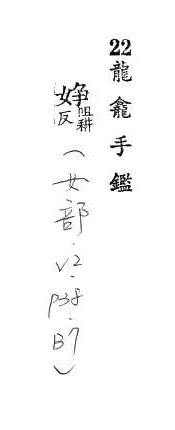 22 龍龕手鑑
婙 阻耕反
(女部.V2.P38.B7)